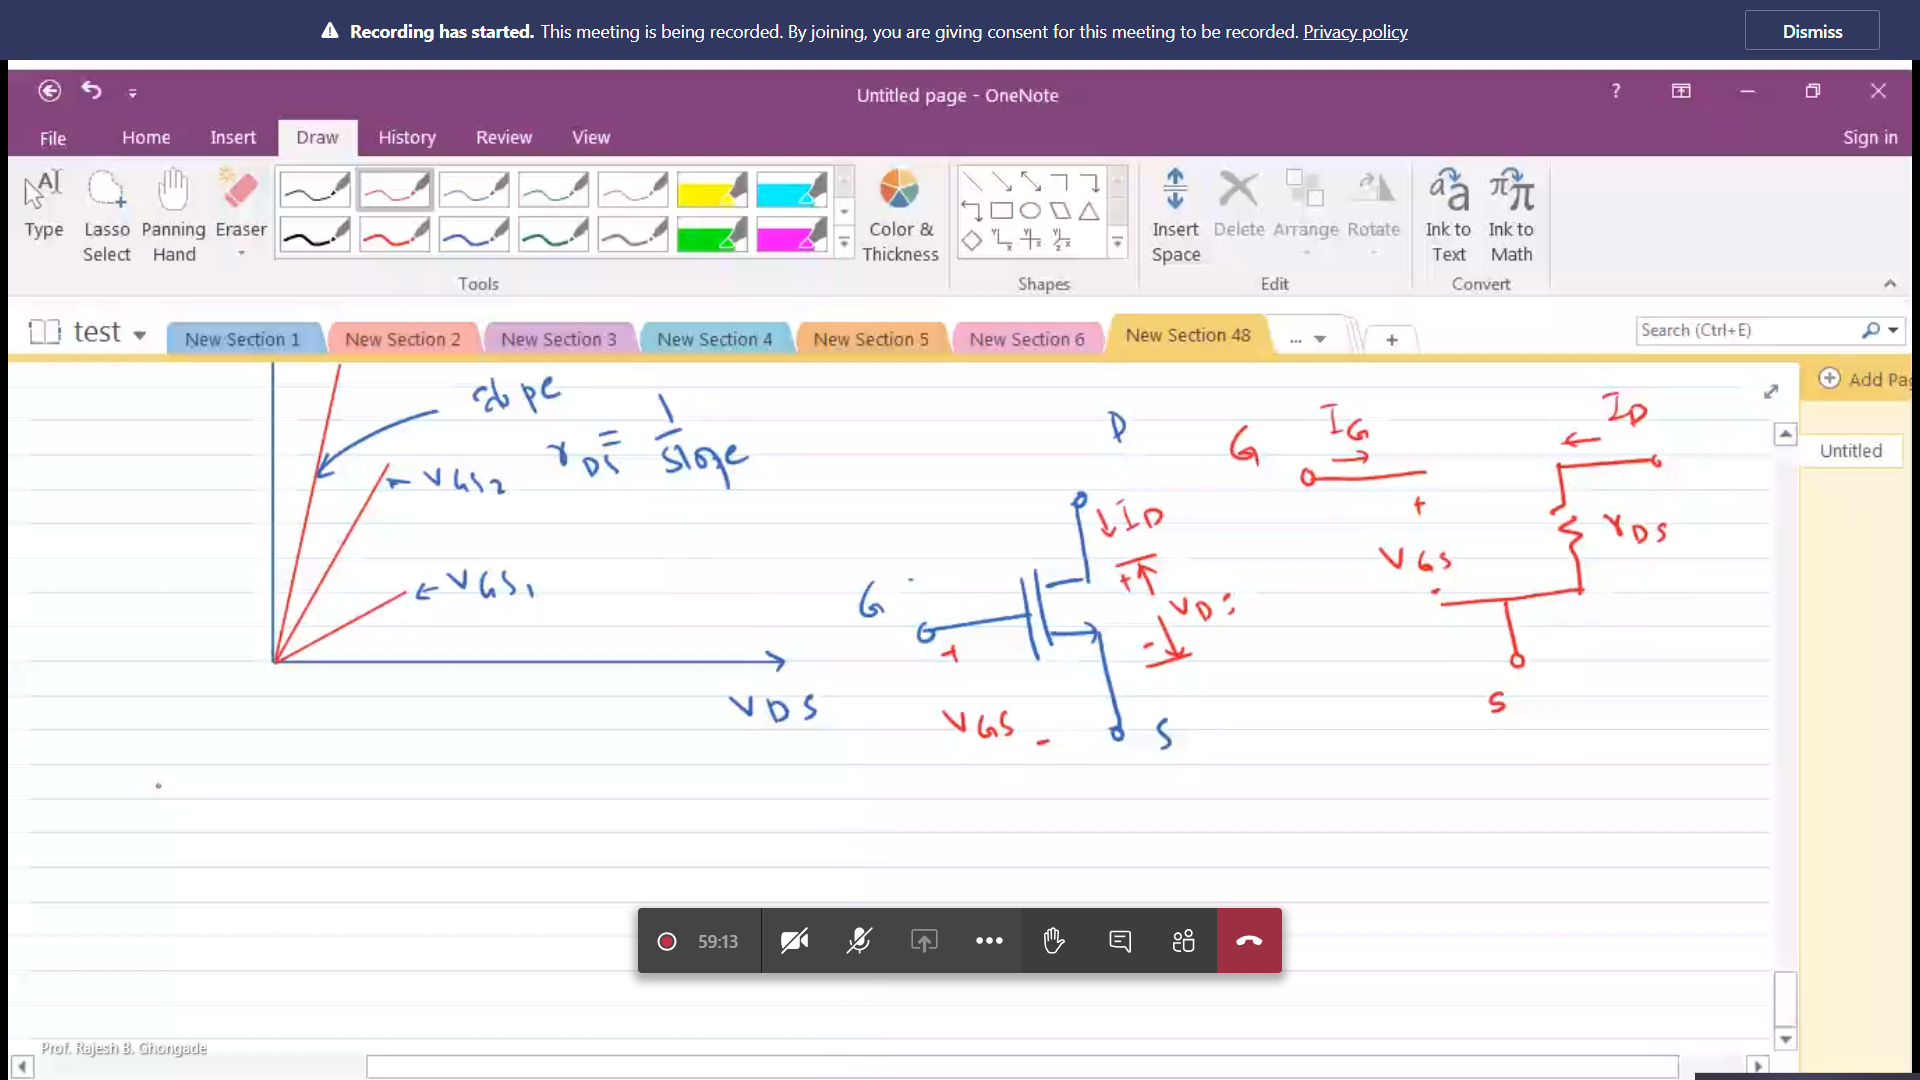 Recording has started. This meeting is being recorded. By joining, you are giving consent for this meeting to be recorded. Privacy policy
Dismiss
Untitled page - OneNote
?
File Home Insert Draw History Review View
Sign in
Type
Lasso Select
Panning Hand
Eraser
Color & Thickness
Insert Space
Delete
Arrange
Rotate
Ink to Text
Ink to Math
Tools
Shapes
Edit
Convert
test
New Section 1
New Section 2
New Section 3
New Section 4
New Section 5
New Section 6
New Section 48
...
+
Search (Ctrl+E)
Add Pag
Untitled
slope
rDS = 1/slope
VGS2
VGS1
VDS
D
ID
G
+
VD
-
+
VGS
-
S
G
IG
ID
+
VGS
-
rDS
S
59:13
Prof. Rajesh B. Ghongade